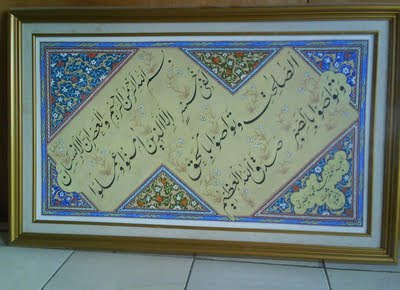 بسم الله الرحمن الرحيم والعصر ان الانسان
لفى خسر الا الذين امنوا وعملوا
الصالحات وتواصوا بالحق
وتواصوا بالصبر صدق الله العظيم